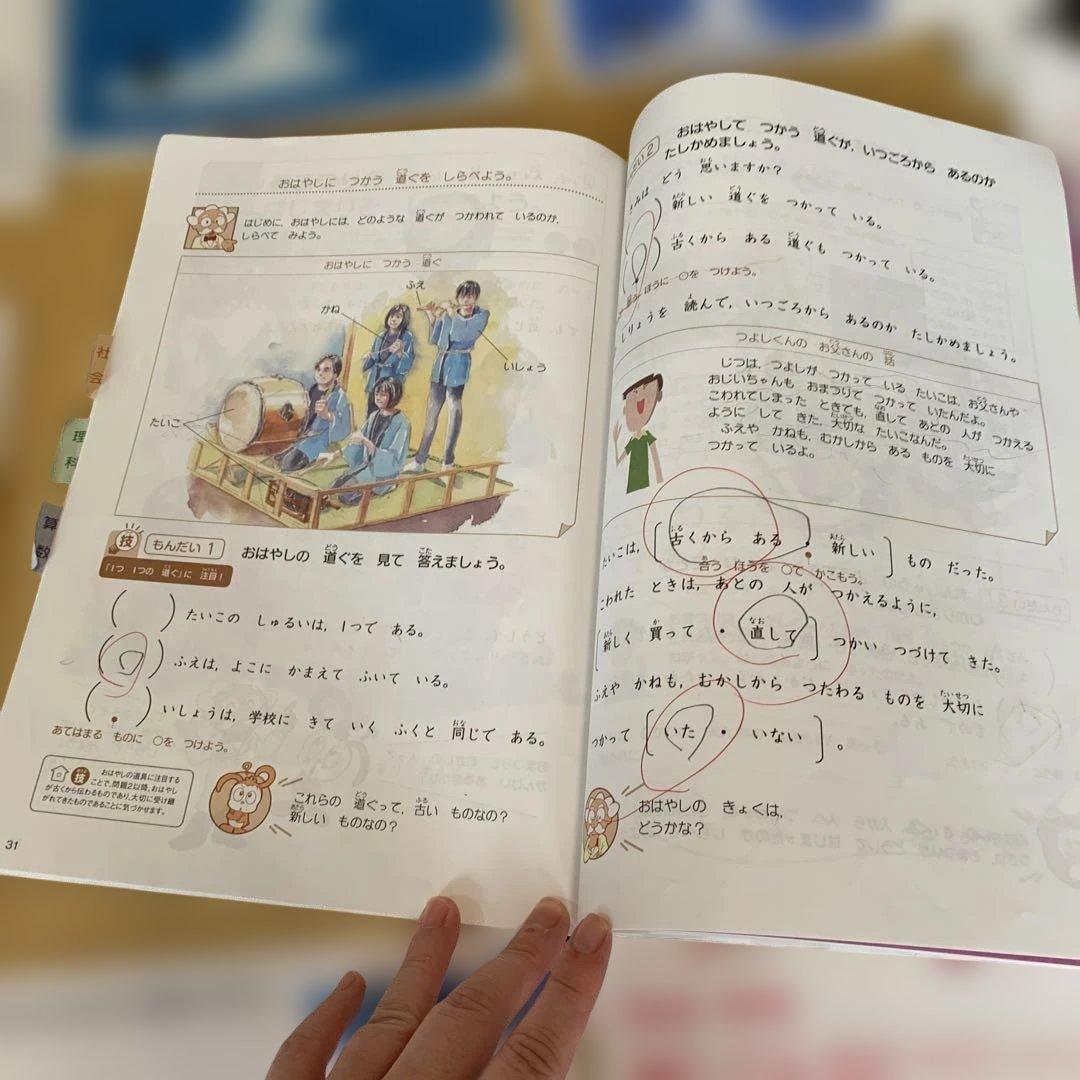 おはやしに つかう 道ぐを しらべよう。
はじめに、おはやしには、どのような 道ぐが つかわれて いるのか、
しらべて みよう。
おはやしに つかう 道ぐ
ふえ
かね
いしょう
たいこ
技 もんだい 1 おはやしの 道ぐを 見て 答えましょう。
「1つ 1つの 道ぐ」に 注目!
( ) たいこの しゅるいは、1つて ある。
(○) ふえは、よこに かまえて ふいて いる。
( ) いしょうは、学校に きて いく ふくと 同じて ある。
あてはまる ものに ○を つけよう。
技 おはやしの道具に注目する
ことで、問題2以降、おはやし
が古くから伝わるものであり、大切に受け継
がれてきたものであることに気づかせます。
これらの 道ぐって、古い ものなの?
新しい ものなの?
31
社会
理科
算数
だい 2 おはやして つかう 道ぐが、いつごろから あるのか
たしかめましょう。
どう 思いますか?
新しい 道ぐを つかって いる。
古くから ある 道ぐも つかって いる。
ほうに ○を つけよう。
しりょうを 読んで、いつごろから あるのか たしかめましょう。
つよしくんの お父さんの 話
じつは、つよしが つかって いる たいこは、お父さんや
おじいちゃんも おまつりて つかって いたんだよ。
こわれてしまった ときても、直して あとの 人が つかえる
ように して きた、大切な たいこなんだ。
ふえや かねも、むかしから ある ものを 大切に
つかって いるよ。
たいこは、[古くから ある ・ 新しい] もの だった。
合う ほうを ○て かこもう。
こわれた ときは、あとの 人が つかえるように、
[新しく 買って ・ 直して] つかい つづけて きた。
ふえや かねも、むかしから つたわる ものを 大切に
つかって [いた ・ いない]。
おはやしの きょくは、
どうかな?